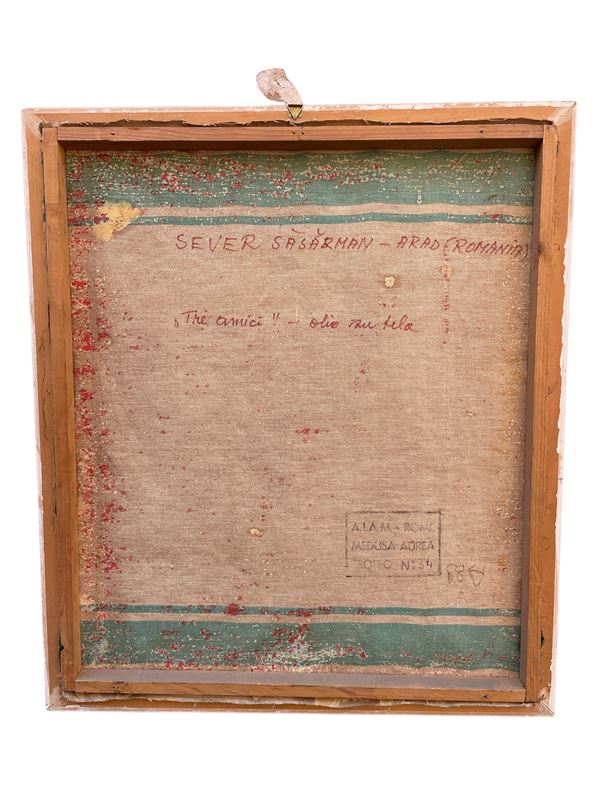 SEVER SĂSĂRMAN – ARAD (ROMANIA)
„Tre amici" – olio su tela
A.I.A.M. - ROME
MEDUSA AUREA
Nº 34